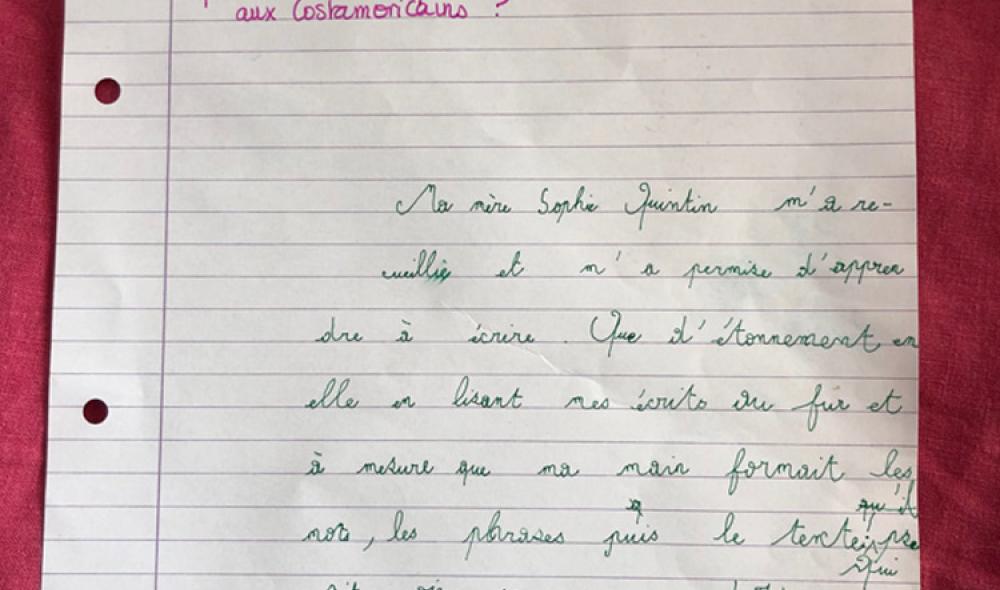 aux Costamericains ?
Ma mère Sophie Quintin m'a re-
cueillie et m'a permise d'appren
dre à écrire. Que d'étonnement en
elle en lisant mes écrits au fur et
à mesure que ma main formait les
mots, les phrases puis le texte
qu'il
qui